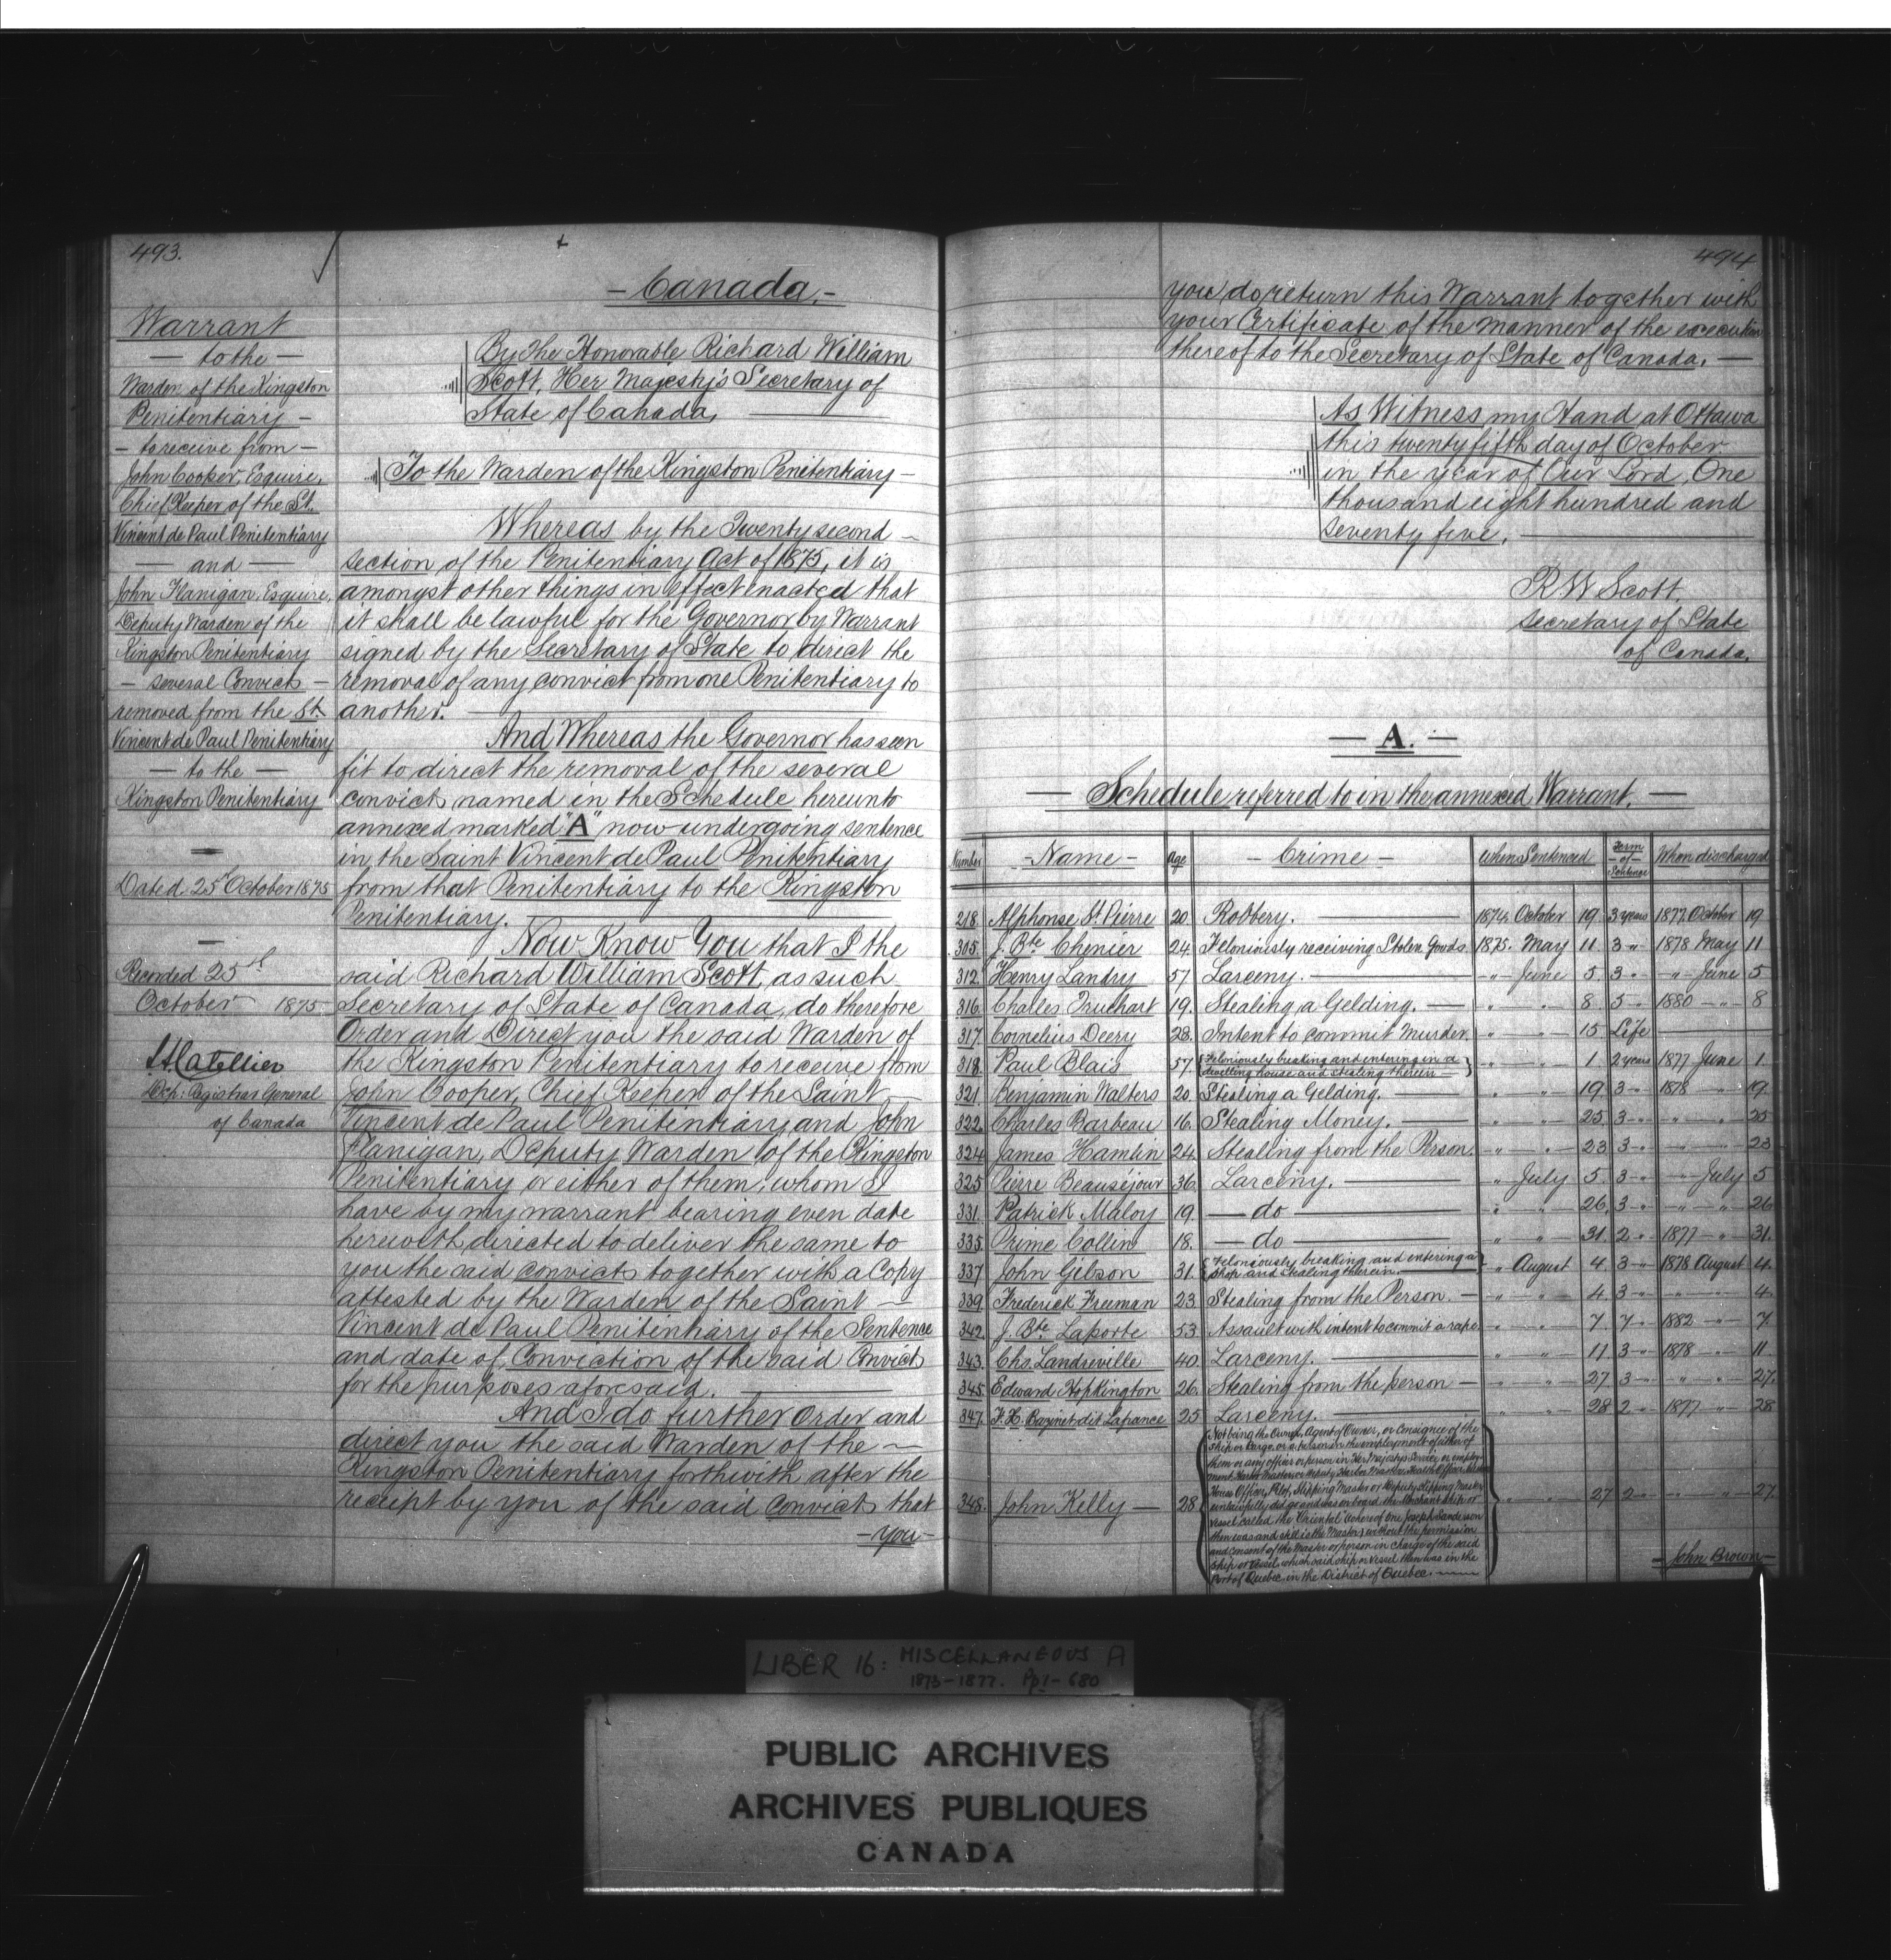 493.
Warrant
— to the —
Warden of the Kingston
Penitentiary —
— to receive from —
John Cooper, Esquire,
Chief Keeper of the St.
Vincent de Paul Penitentiary
— and —
John Flanigan, Esquire,
Deputy Warden of the
Kingston Penitentiary
— several Convicts —
removed from the St.
Vincent de Paul Penitentiary
— to the —
Kingston Penitentiary
Dated 25th October 1875
Recorded 25th
October 1875
Dep. Registrar General
of Canada
— Canada. —
By The Honorable Richard William
Scott, Her Majesty's Secretary of
State of Canada,
To the Warden of the Kingston Penitentiary —
Whereas by the Twenty second —
section of the Penitentiary Act of 1875, it is
amongst other things in effect enacted that
it shall be lawful for the Governor by Warrant
signed by the Secretary of State to direct the
removal of any convict from one Penitentiary to
another. —
And Whereas the Governor has seen
fit to direct the removal of the several
convicts named in the Schedule hereunto
annexed marked "A" now undergoing sentence
in the Saint Vincent de Paul Penitentiary
from that Penitentiary to the Kingston
Penitentiary. —
Now Know You that I the
said Richard William Scott, as such
Secretary of State of Canada, do therefore
Order and Direct you the said Warden of
the Kingston Penitentiary to receive from
John Cooper, Chief Keeper of the Saint —
Vincent de Paul Penitentiary and John
Flanigan, Deputy Warden of the Kingston
Penitentiary or either of them, whom I
have by my warrant bearing even date
herewith directed to deliver the same to
you the said convicts together with a Copy
attested by the Warden of the Saint —
Vincent de Paul Penitentiary of the Sentence
and date of Conviction of the said Convicts
for the purposes aforesaid. —
And I do further Order and
direct you the said Warden of the —
Kingston Penitentiary forthwith after the
receipt by you of the said Convicts that
— you —
494
you do return this Warrant together with
your Certificate of the manner of the execution
thereof to the Secretary of State of Canada. —
As Witness my Hand at Ottawa
this twenty fifth day of October
in the year of Our Lord, One
thousand eight hundred and
seventy five. —
R W Scott
Secretary of State
of Canada.
— A. —
— Schedule referred to in the annexed Warrant. —
Number — Name — Age — Crime — When Sentenced Term of Sentence When discharged
218. Alphonse St. Pierre 20. Robbery. — 1874. October 19. 3 years 1877. October 19.
305. J. Bte Chenier 24. Feloniously receiving Stolen Goods 1875. May 11. 3 " 1878 May 11
312. Henry Landry 51 Larceny. — " June 5. 3 " " June 5
316. Charles Trudhart 19. Stealing a Gelding. — " " 8. 5 " 1880 " 8
317. Cornelius Deery 28. Intent to commit Murder. " " 15. Life —
318. Paul Blais 57. Feloniously breaking and entering in a dwelling house and stealing therein — " " 1. 2 years 1877 June 1.
321. Benjamin Walters 20. Stealing a Gelding. — " " 19. 3 " 1878 " 19.
322. Charles Barbeau 16. Stealing Money. — " " 25 3 " " " 25
324. James Hamlin 24. Stealing from the Person. " " 23 3 " " " 23
325 Pierre Beauséjour 36. Larceny. — " July 5. 3 " " July 5
331. Patrick Maloy 19. — do — " " 26. 3 " " " 26
335. Prime Collin 18. — do — " " 31. 2 " 1877 " 31.
337 John Gibson 31. Feloniously breaking and entering a shop and stealing therein — " August 4. 3 " 1878 August 4.
339 Frederick Freeman 23. Stealing from the Person. — " " 4. 3 " " " 4.
342. J. Bte Laporte 53 Assault with intent to commit a rape. " " 7 7 " 1882 " 7.
343. Chs. Landreville 40. Larceny. — " " 11 3 " 1878 " 11.
345. Edward Hopkington 26. Stealing from the person — " " 27 3 " " " 27.
347. F. H. Bazinet dit Lafrance 25 Larceny. — " " 28 2 " 1877 " 28
348. John Kelly — 28 " " 27 2 " " " 27.
Not being the Owner, Agent of Owner, or Consignee of the
Ship or Cargo, or a person in the employment of either of
them or any officer or person in Her Majesty's Service or employ-
ment Harbor Master, or Deputy Harbor Master, Health Officer, Custom
House Officer, Pilot, Shipping Master or Deputy Shipping Master
unlawfully did go and was on board the Merchant Ship or
Vessel called the "Oriental" whereof one Joseph Sanderson
then was and still is the Master, without the permission
and consent of the Master or person in charge of the said
Ship or Vessel, which said ship or Vessel then was in the
Port of Quebec in the District of Quebec. —
— John Brown —
LIBER 16: MISCELLANEOUS A
1873-1877. Pp 1-680
PUBLIC ARCHIVES
ARCHIVES PUBLIQUES
CANADA